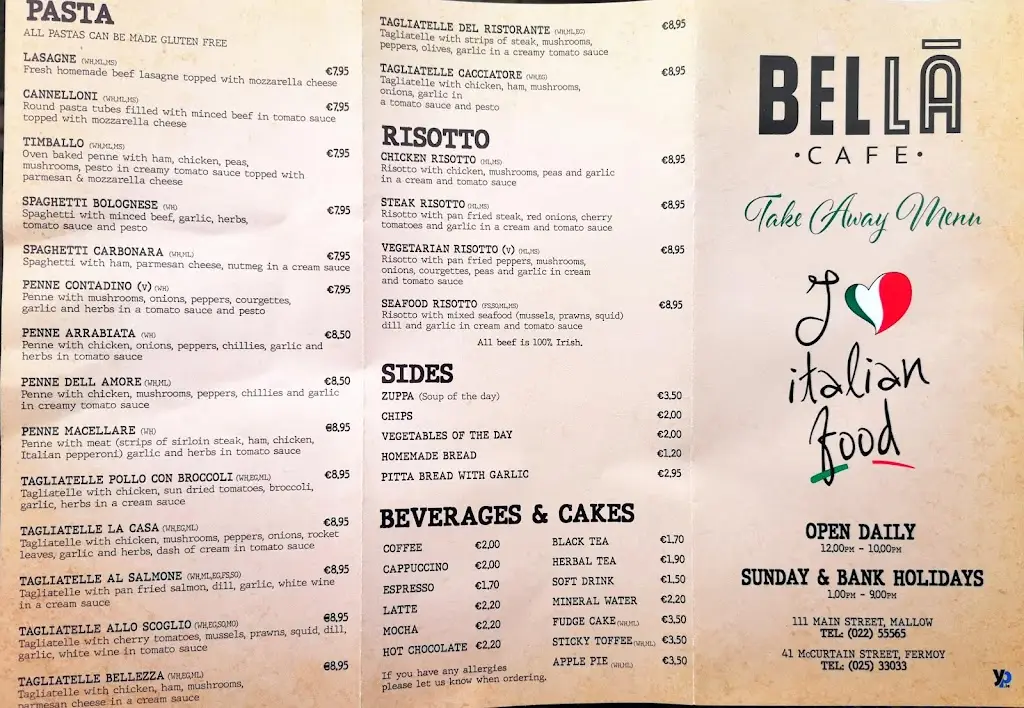 PASTA
ALL PASTAS CAN BE MADE GLUTEN FREE
LASAGNE (WH,ML,MS) €7,95
Fresh homemade beef lasagne topped with mozzarella cheese
CANNELLONI (WH,ML,MS) €7,95
Round pasta tubes filled with minced beef in tomato sauce
topped with mozzarella cheese
TIMBALLO (WH,ML,MS) €7,95
Oven baked penne with ham, chicken, peas,
mushrooms, pesto in creamy tomato sauce topped with
parmesan & mozzarella cheese
SPAGHETTI BOLOGNESE (WH) €7,95
Spaghetti with minced beef, garlic, herbs,
tomato sauce and pesto
SPAGHETTI CARBONARA (WH,ML) €7,95
Spaghetti with ham, parmesan cheese, nutmeg in a cream sauce
PENNE CONTADINO (v) (WH) €7,95
Penne with mushrooms, onions, peppers, courgettes,
garlic and herbs in a tomato sauce and pesto
PENNE ARRABIATA (WH) €8,50
Penne with chicken, onions, peppers, chillies, garlic and
herbs in tomato sauce
PENNE DELL AMORE (WH,ML) €8,50
Penne with chicken, mushrooms, peppers, chillies and garlic
in creamy tomato sauce
PENNE MACELLARE (WH) €8,95
Penne with meat (strips of sirloin steak, ham, chicken,
Italian pepperoni) garlic and herbs in tomato sauce
TAGLIATELLE POLLO CON BROCCOLI (WH,EG,ML) €8,95
Tagliatelle with chicken, sun dried tomatoes, broccoli,
garlic, herbs in a cream sauce
TAGLIATELLE LA CASA (WH,EG,ML) €8,95
Tagliatelle with chicken, mushrooms, peppers, onions, rocket
leaves, garlic and herbs, dash of cream in tomato sauce
TAGLIATELLE AL SALMONE (WH,ML,EG,FS,SO) €8,95
Tagliatelle with pan fried salmon, dill, garlic, white wine
in a cream sauce
TAGLIATELLE ALLO SCOGLIO (WH,EG,SO,MO) €8,95
Tagliatelle with cherry tomatoes, mussels, prawns, squid, dill,
garlic, white wine in tomato sauce
TAGLIATELLE BELLEZZA (WH,EG,ML) €8,95
Tagliatelle with chicken, ham, mushrooms,
parmesan cheese in a cream sauce
TAGLIATELLE DEL RISTORANTE (WH,ML,EG) €8,95
Tagliatelle with strips of steak, mushrooms,
peppers, olives, garlic in a creamy tomato sauce
TAGLIATELLE CACCIATORE (WH,EG) €8,95
Tagliatelle with chicken, ham, mushrooms,
onions, garlic in
a tomato sauce and pesto
RISOTTO
CHICKEN RISOTTO (ML,MS) €8,95
Risotto with chicken, mushrooms, peas and garlic
in a cream and tomato sauce
STEAK RISOTTO (ML,MS) €8,95
Risotto with pan fried steak, red onions, cherry
tomatoes and garlic in a cream and tomato sauce
VEGETARIAN RISOTTO (v) (ML,MS) €8,95
Risotto with pan fried peppers, mushrooms,
onions, courgettes, peas and garlic in cream
and tomato sauce
SEAFOOD RISOTTO (FS,SO,ML,MS) €8,95
Risotto with mixed seafood (mussels, prawns, squid)
dill and garlic in cream and tomato sauce
All beef is 100% Irish.
SIDES
ZUPPA (Soup of the day) €3,50
CHIPS €2,00
VEGETABLES OF THE DAY €2,00
HOMEMADE BREAD €1.20
PITTA BREAD WITH GARLIC €2.95
BEVERAGES & CAKES
COFFEE €2,00
CAPPUCCINO €2,00
ESPRESSO €1,70
LATTE €2,20
MOCHA €2,20
HOT CHOCOLATE €2,20
BLACK TEA €1.70
HERBAL TEA €1.90
SOFT DRINK €1.50
MINERAL WATER €2.20
FUDGE CAKE (WH,ML) €3,50
STICKY TOFFEE (WH,ML) €3,50
APPLE PIE (WH,ML) €3,50
If you have any allergies
please let us know when ordering.
BELLA
·CAFE·
Take Away Menu
I
italian
food
OPEN DAILY
12.00PM - 10.00PM
SUNDAY & BANK HOLIDAYS
1.00PM - 9.00PM
111 MAIN STREET, MALLOW
TEL: (022) 55565
41 McCURTAIN STREET, FERMOY
TEL: (025) 33033